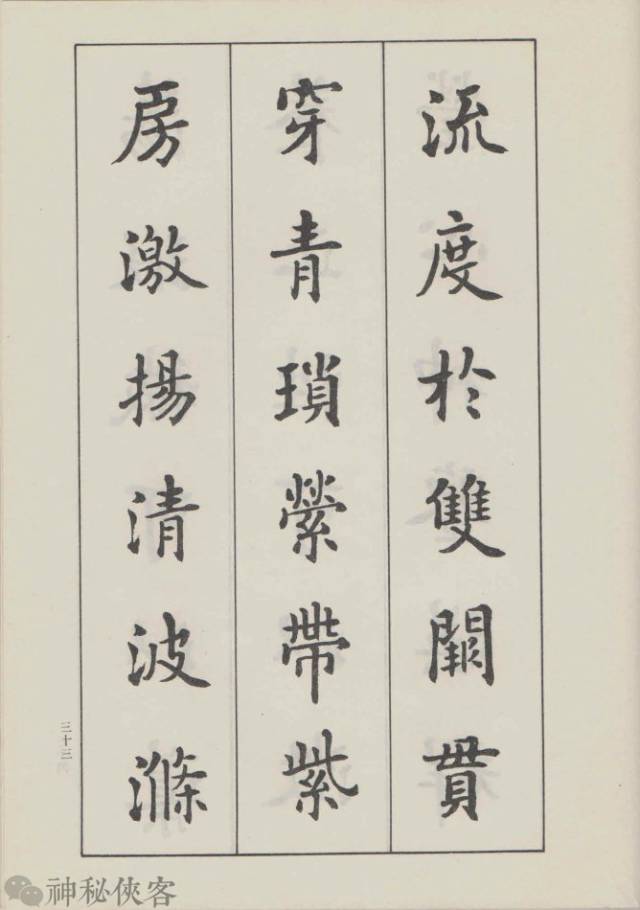 流度於雙闕貫
穿青瑣縈帶紫
房激揚清波滌
三十三
神秘俠客